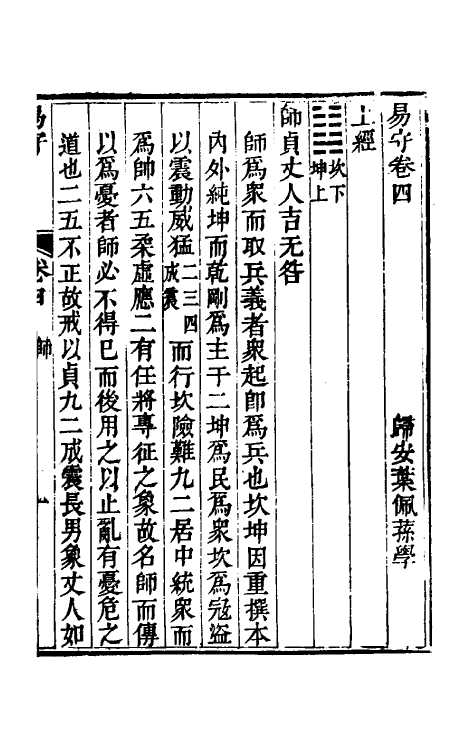 易守卷四
歸安葉佩蓀學
上經
䷆坎下坤上
師貞丈人吉无咎
師爲衆而取兵義者衆起卽爲兵也坎坤因重撰本
內外純坤而乾剛爲主干二坤爲民爲衆坎爲寇盜
以震動威猛二三四成震而行坎險難九二居中統衆而
爲帥六五柔虛應二有任將專征之象故名師而傳
以爲憂者師必不得已而後用之以止亂有憂危之
道也二五不正故戒以貞九二成震長男象丈人如
易守
卷四
師
一